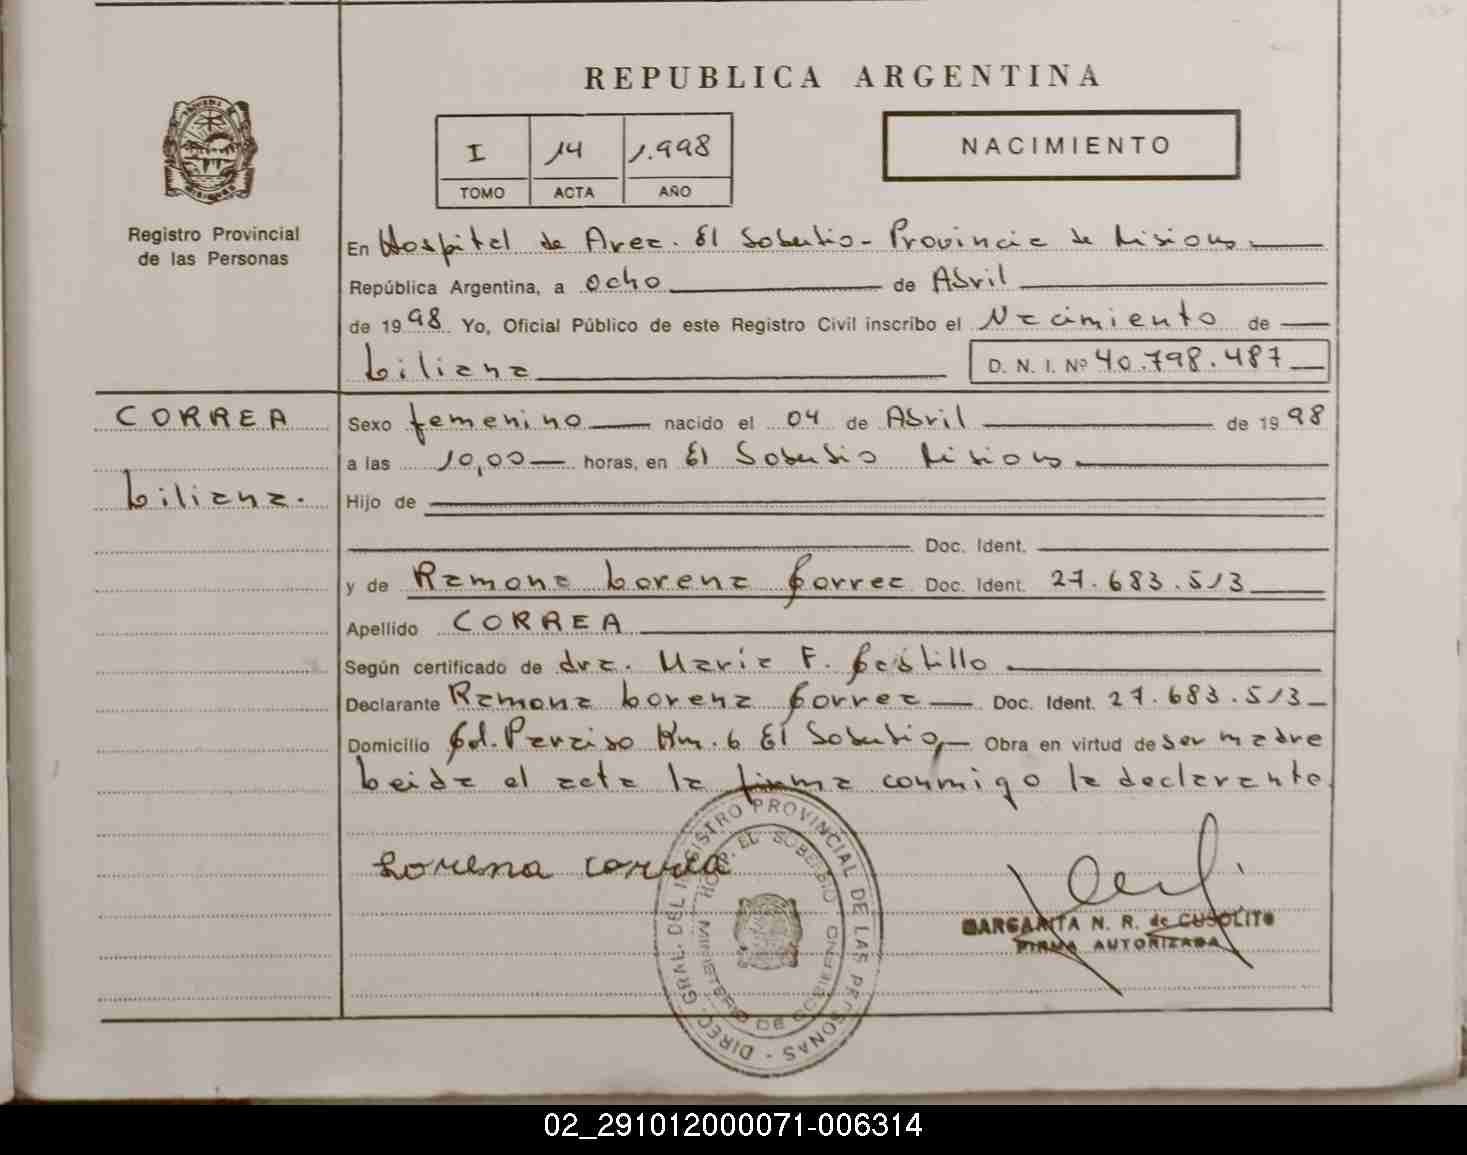 REPUBLICA ARGENTINA
I 14 1.998
TOMO ACTA AÑO
NACIMIENTO
Registro Provincial
de las Personas
En Hospital de Area. El Soberbio - Provincia de Misiones
República Argentina, a ocho de Abril
de 1998 Yo, Oficial Público de este Registro Civil inscribo el Nacimiento de
Liliana D. N. I. Nº 40.798.487
CORREA
Liliana.
Sexo femenino nacido el 04 de Abril de 1998
a las 10,00 horas, en El Soberbio Misiones
Hijo de
Doc. Ident.
y de Ramona Lorena Correa Doc. Ident. 27.683.513
Apellido CORREA
Según certificado de dra. Maria F. Castillo
Declarante Ramona Lorena Correa Doc. Ident. 27.683.513
Domicilio Col. Paraiso Km. 6 El Soberbio Obra en virtud de ser madre
Leida el acta la firma conmigo la declarante.
Lorena Correa
DIREC. GRAL. DEL REGISTRO PROVINCIAL DE LAS PERSONAS
HOSP. EL SOBERBIO
MINISTERIO DE GOBIERNO
MARGARITA N. R. de CUSOLITO
FIRMA AUTORIZADA
02_291012000071-006314